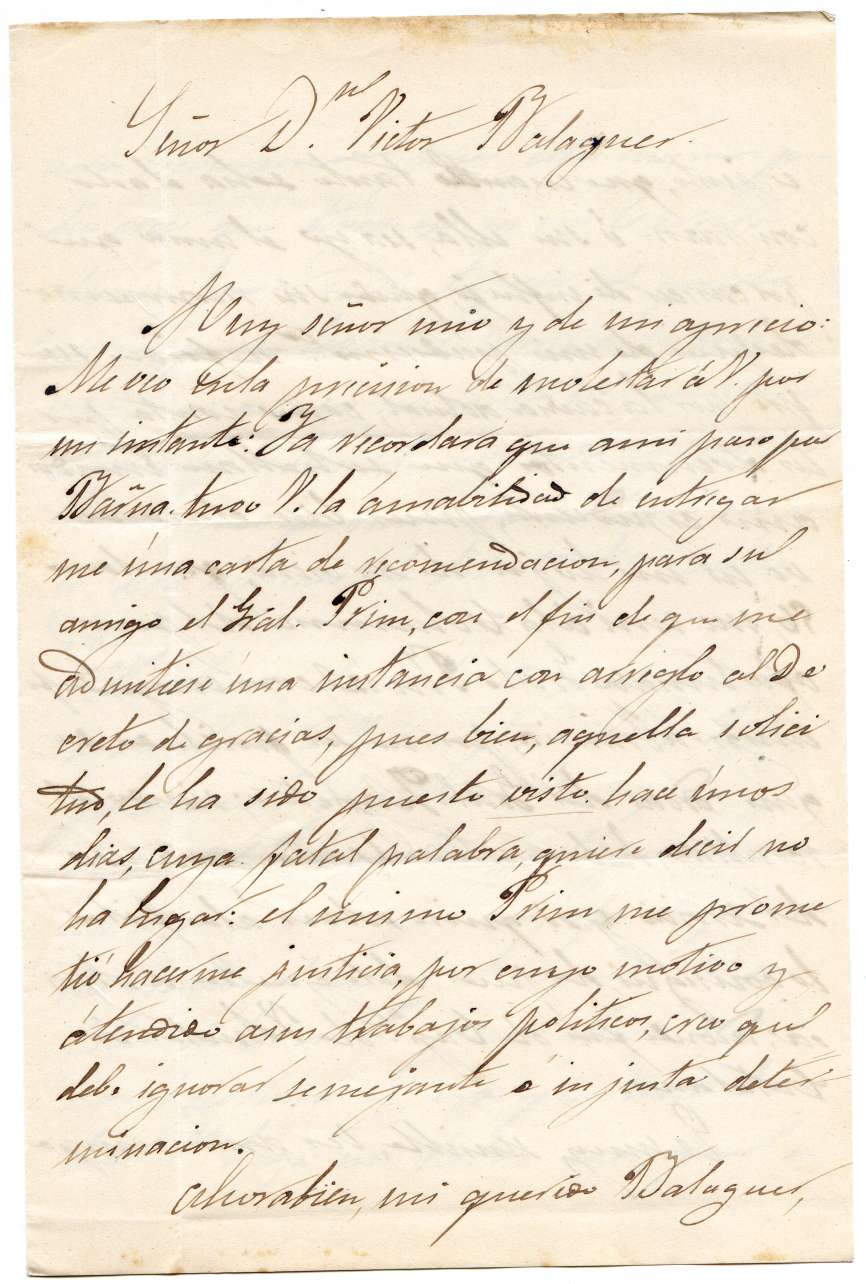 Señor D.n Victor Balaguer.
Muy señor mio y de mi aprecio:
Me veo en la precision de molestar á V. por
un instante: Ya recordará que a mi paso por
Barña. tuvo V. la ámabilidad de entregar
me úna carta de recomendacion, para su
amigo el Gral. Prim, con el fin de que me
admitiese úna instancia con arreglo al De
creto de gracias, pues bien, aquella solici
tud, le ha sido puesto visto. hace únos
dias, cuya fatal palabra, quiere decir no
ha lugar: el mismo Prim me prome
tió hacerme justicia, por cuyo motivo y
átendido á mis trabajos politicos, creo que
debe ignorar semejante é injusta deter
minacion.
Ahora bien, mi querido Balaguer,